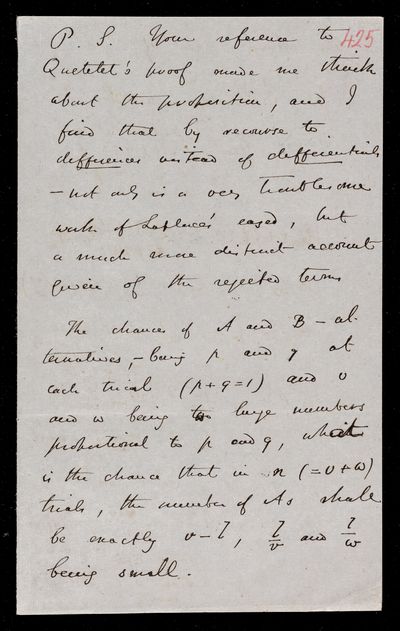 P. S. Your reference to 425
Quetelet's proof made me think
about the proposition, and I
find that by recourse to
differences instead of differentials
— not only is a very troublesome
work of Laplace's eased, but
a much more distinct account
given of the rejected terms
The chances of A and B – al-
ternatives, – being p and q at
each trial (p+q=1) and v
and w being two large numbers
proportional to p and q, what
is the chance that in n (=v+w)
trials, the number of As shall
be exactly v–l, l/v and l/w
being small.